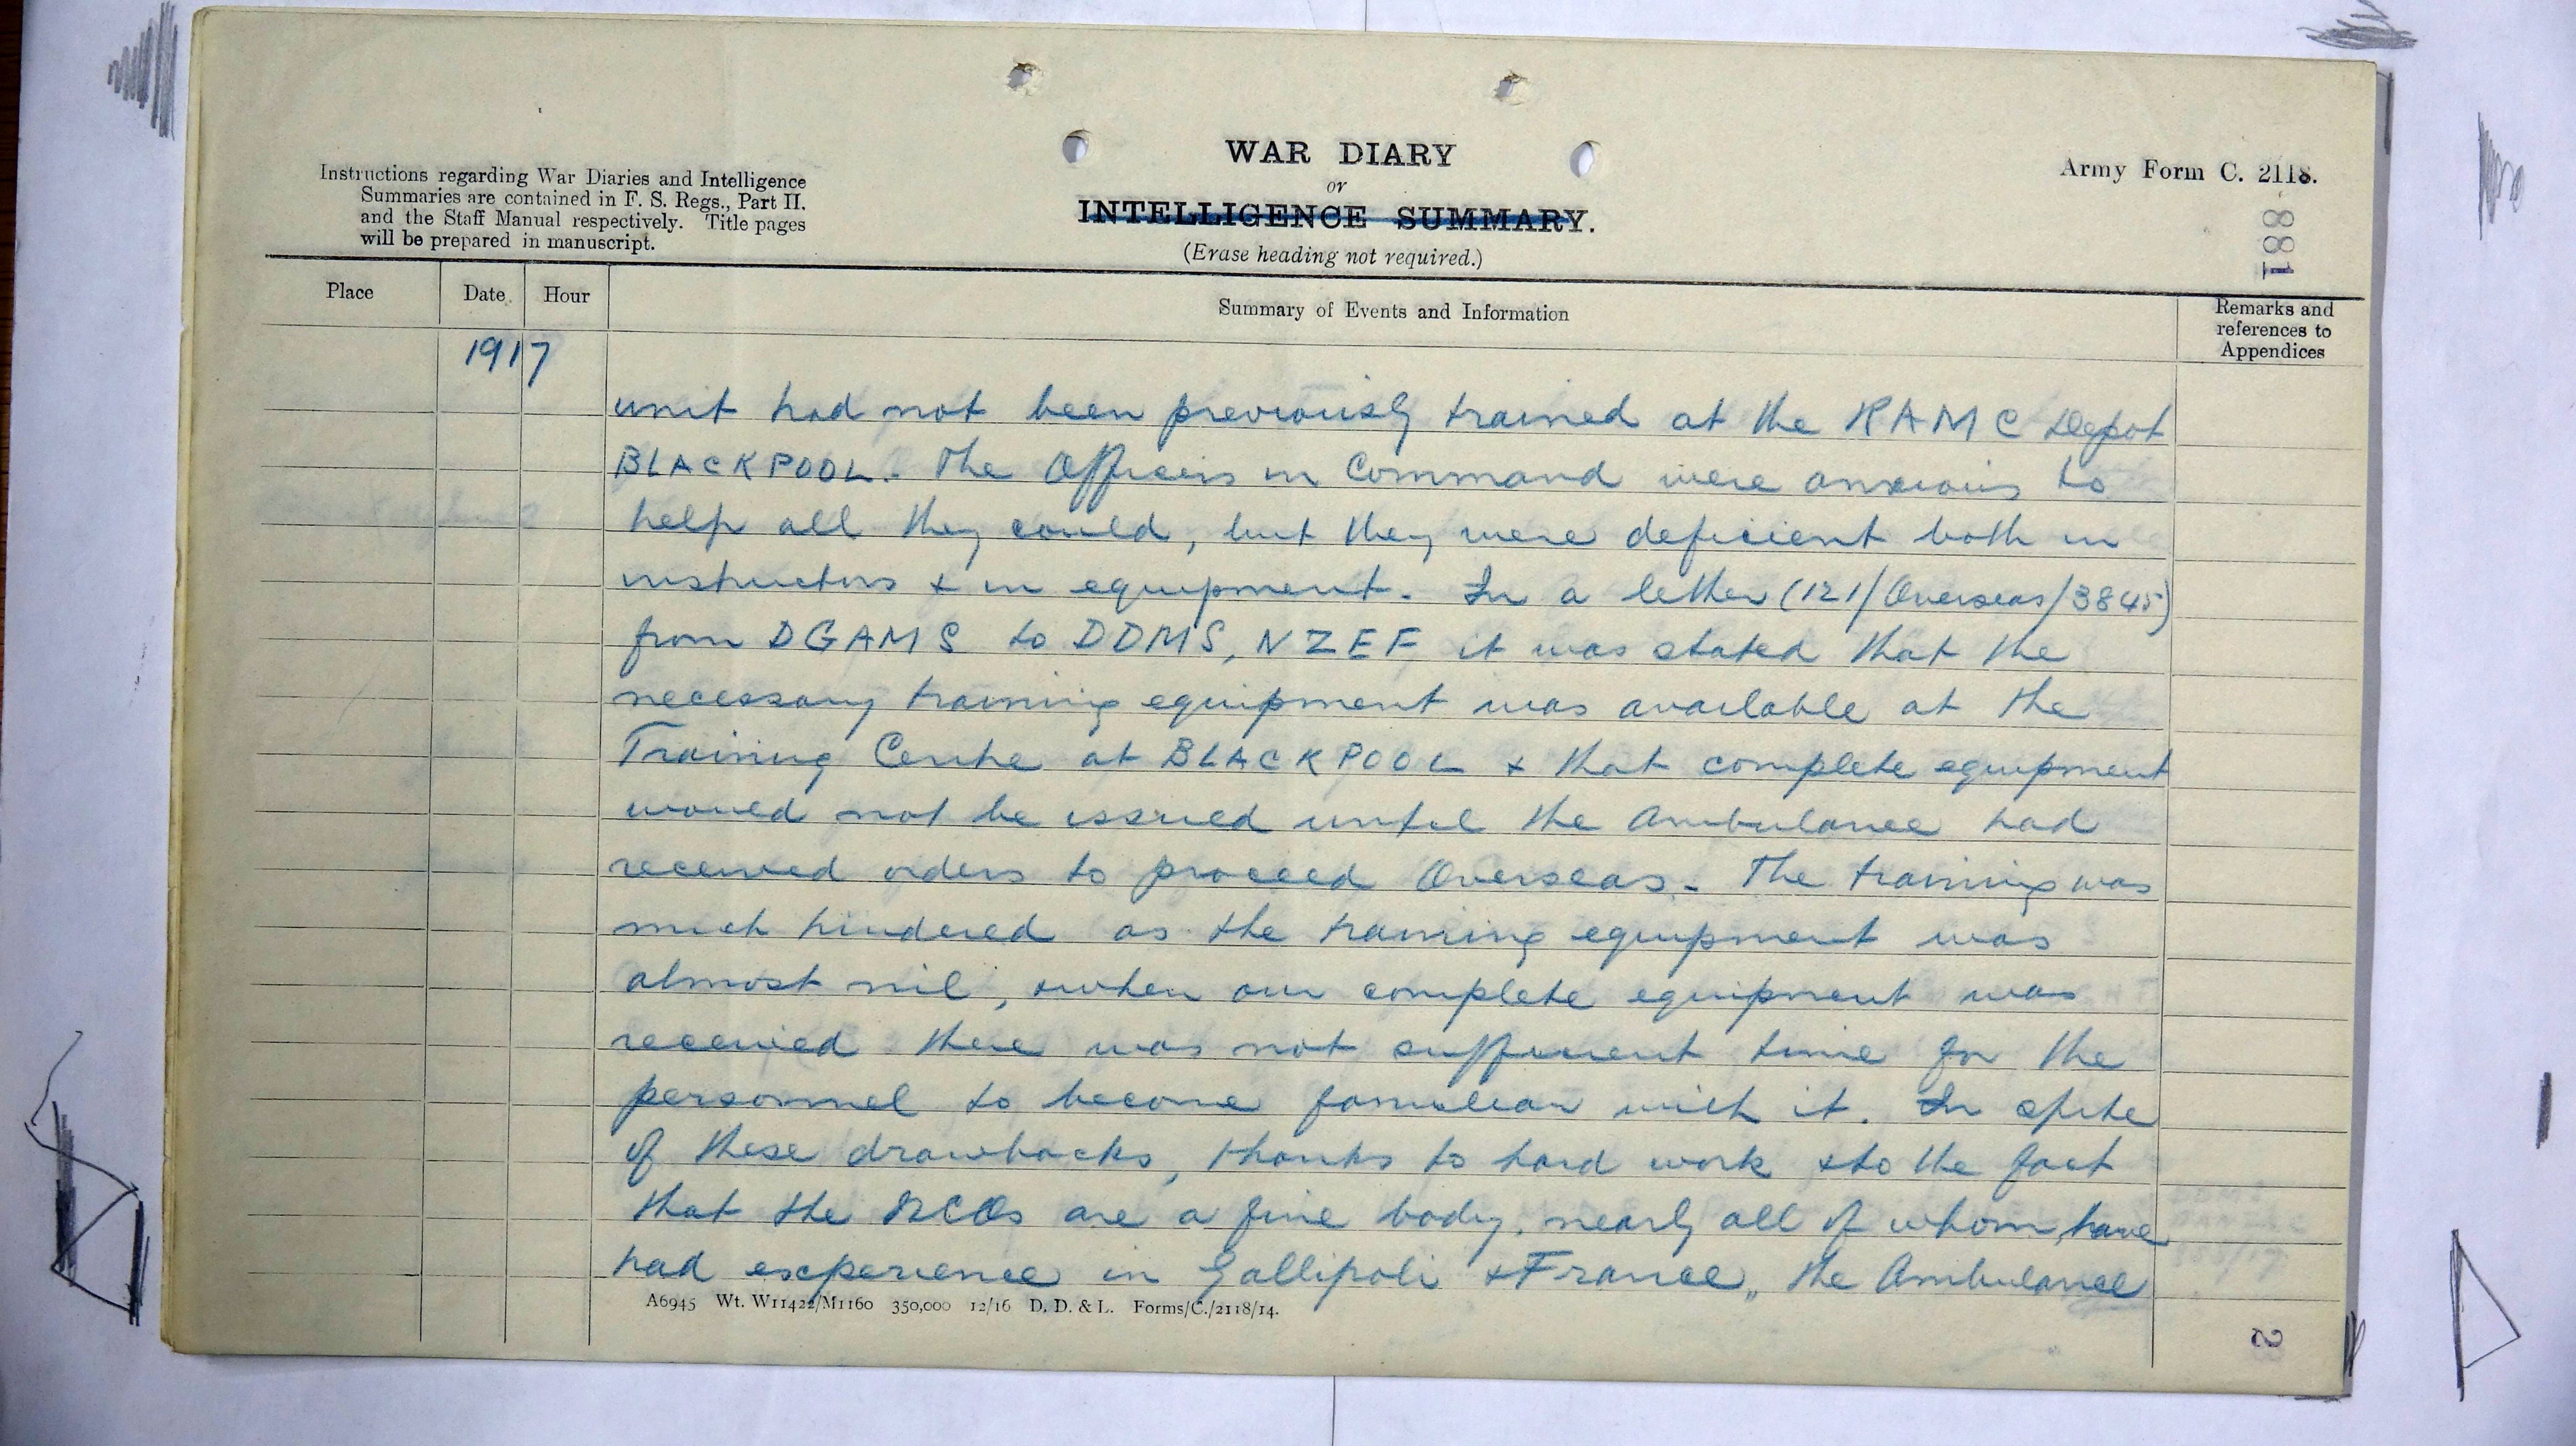 WAR DIARY
or
INTELLIGENCE SUMMARY.
(Erase heading not required.)
Army Form C. 2118.
Instructions regarding War Diaries and Intelligence
Summaries are contained in F. S. Regs., Part II.
and the Staff Manual respectively. Title pages
will be prepared in manuscript.
881
Place
Date
Hour
Summary of Events and Information
Remarks and
references to
Appendices
1917
unit had not been previously trained at the RAMC Depot
BLACKPOOL. The Officers in Command were anxious to
help all they could, but they were deficient both in
instructors & in equipment. In a letter (121/Overseas/3845)
from DGAMS to DDMS, NZEF it was stated that the
necessary training equipment was available at the
Training Centre at BLACKPOOL & that complete equipment
would not be issued until the Ambulance had
received orders to proceed Overseas. The training was
much hindered as the training equipment was
almost nil, & when our complete equipment was
received there was not sufficient time for the
personnel to become familiar with it. In spite
of these drawbacks, thanks to hard work & to the fact
that the NCOs are a fine body, nearly all of whom have
had experience in Gallipoli & France, the Ambulance
A6945 Wt. W11422/M1160 350,000 12/16 D. D. & L. Forms/C./2118/14.
2